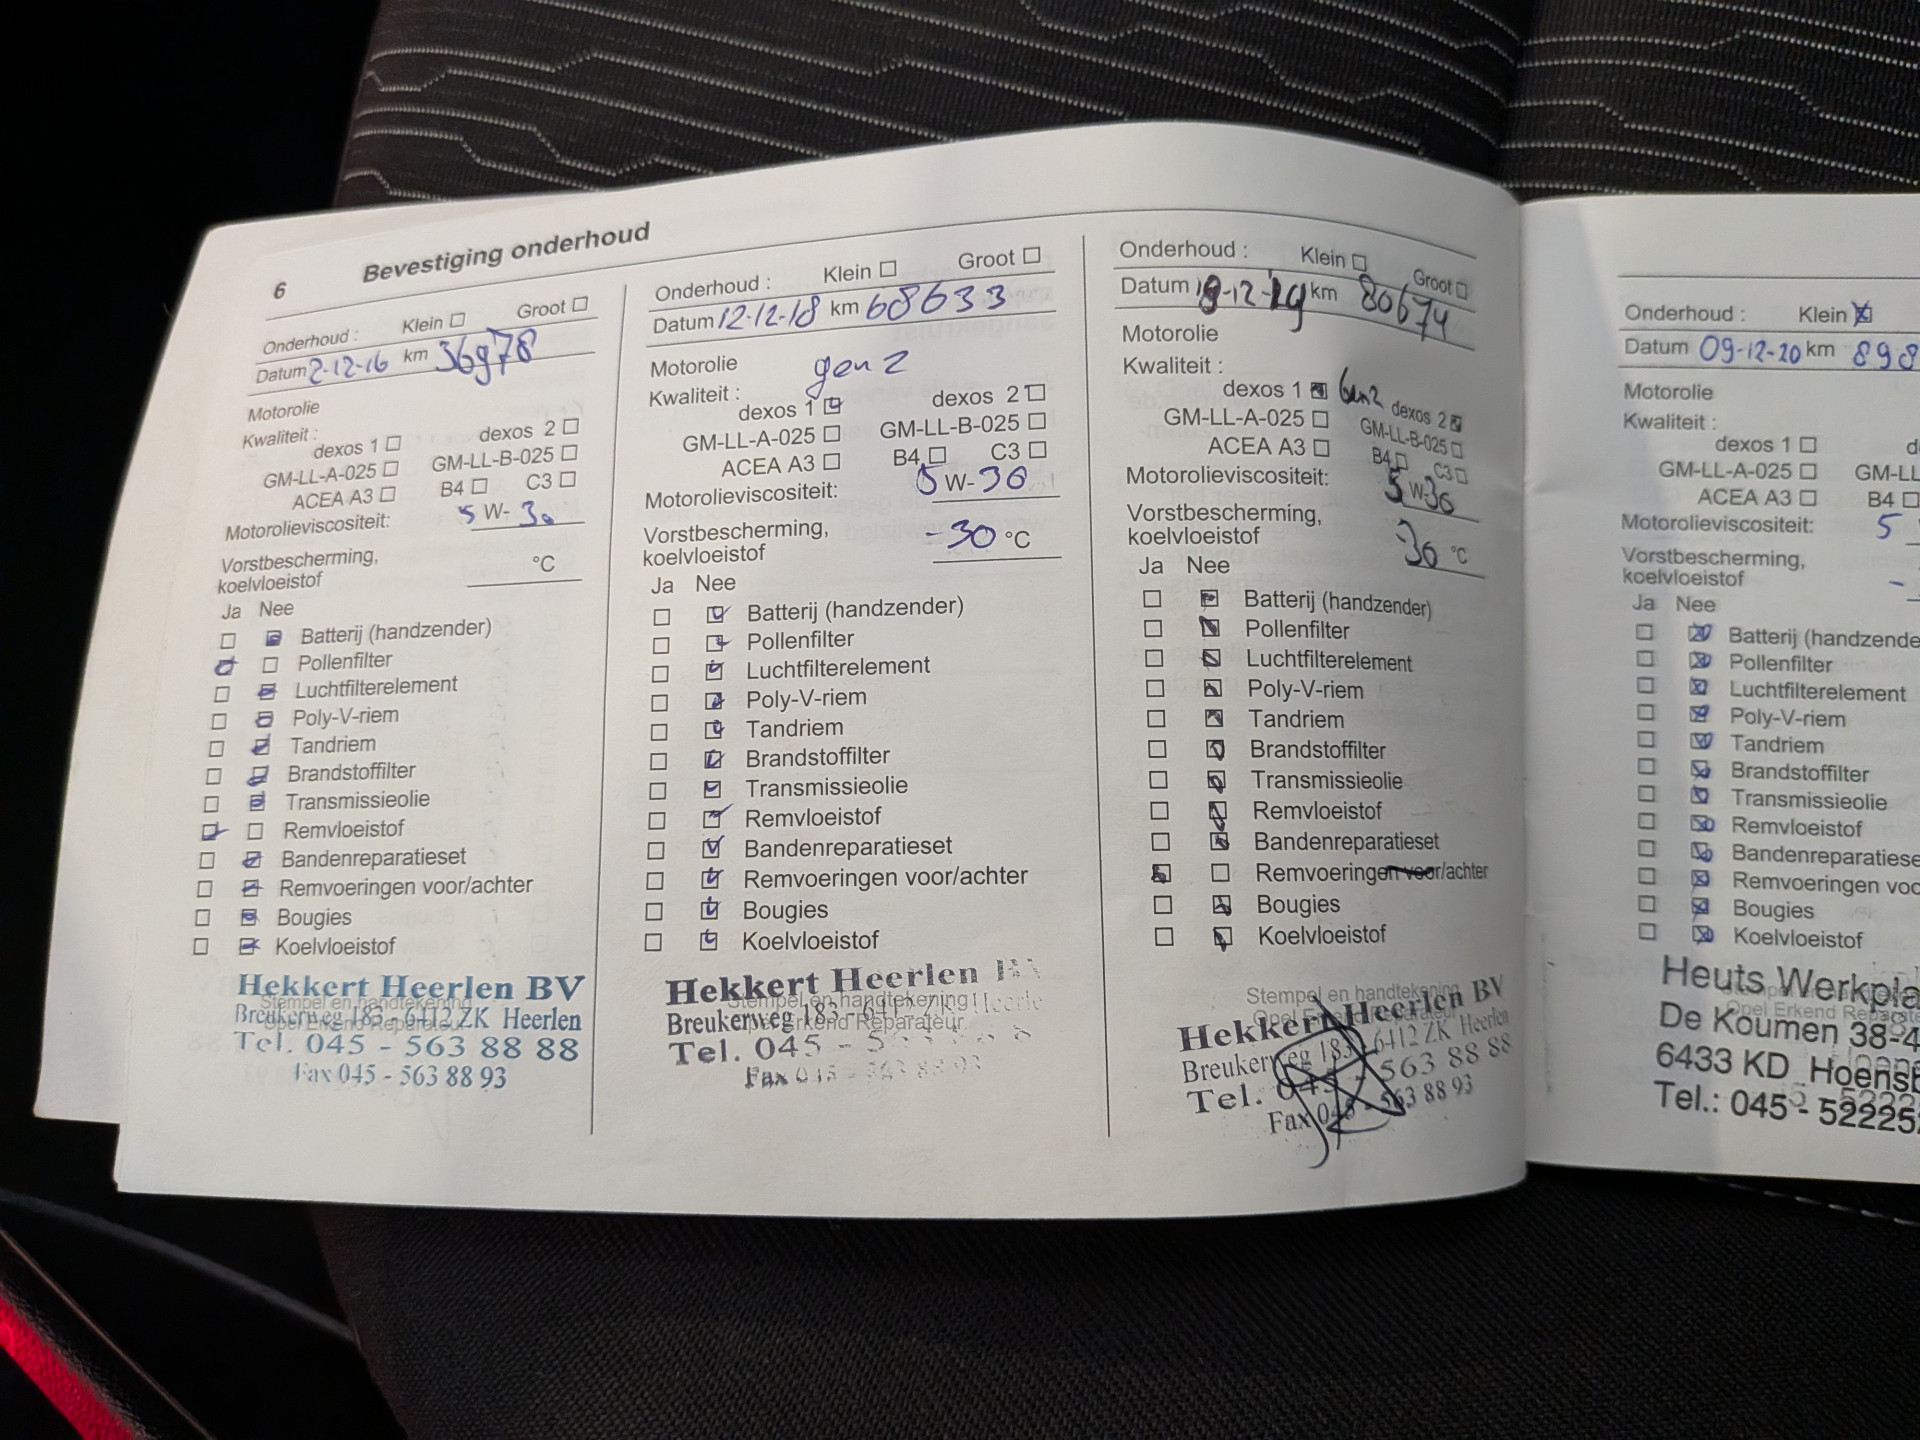 6 Bevestiging onderhoud
Onderhoud : Klein Groot
Datum 2-12-16 km 36978
Motorolie
Kwaliteit :
dexos 1 dexos 2
GM-LL-A-025 GM-LL-B-025
ACEA A3 B4 C3
Motorolieviscositeit: 5 W- 30
Vorstbescherming,
koelvloeistof °C
Ja Nee
Batterij (handzender)
Pollenfilter
Luchtfilterelement
Poly-V-riem
Tandriem
Brandstoffilter
Transmissieolie
Remvloeistof
Bandenreparatieset
Remvoeringen voor/achter
Bougies
Koelvloeistof
Stempel en handtekening
Opel Erkend Reparateur
Hekkert Heerlen BV
Breukerweg 183 - 6412 ZK Heerlen
Tel. 045 - 563 88 88
Fax 045 - 563 88 93
Onderhoud : Klein Groot
Datum 12-12-18 km 68633
Motorolie
gen 2
Kwaliteit :
dexos 1 dexos 2
GM-LL-A-025 GM-LL-B-025
ACEA A3 B4 C3
Motorolieviscositeit: 5 W- 30
Vorstbescherming,
koelvloeistof -30 °C
Ja Nee
Batterij (handzender)
Pollenfilter
Luchtfilterelement
Poly-V-riem
Tandriem
Brandstoffilter
Transmissieolie
Remvloeistof
Bandenreparatieset
Remvoeringen voor/achter
Bougies
Koelvloeistof
Stempel en handtekening
Opel Erkend Reparateur
Hekkert Heerlen
Breukerweg 183 -
Tel. 045 -
Fax 045 - 563 88 93
Onderhoud : Klein Groot
Datum 19-12-19 km 80674
Motorolie
Kwaliteit :
dexos 1 Gen2 dexos 2
GM-LL-A-025 GM-LL-B-025
ACEA A3 B4 C3
Motorolieviscositeit: 5 W- 30
Vorstbescherming,
koelvloeistof -30 °C
Ja Nee
Batterij (handzender)
Pollenfilter
Luchtfilterelement
Poly-V-riem
Tandriem
Brandstoffilter
Transmissieolie
Remvloeistof
Bandenreparatieset
Remvoeringen voor/achter
Bougies
Koelvloeistof
Stempel en handtekening
Opel Erkend Reparateur
Hekkert Heerlen BV
Breukerweg 183 - 6412 ZK Heerlen
Tel. 045 - 563 88 88
Fax 045 - 563 88 93
Onderhoud : Klein
Datum 09-12-20 km 898
Motorolie
Kwaliteit :
dexos 1 d
GM-LL-A-025 GM-LL
ACEA A3 B4
Motorolieviscositeit: 5
Vorstbescherming,
koelvloeistof -
Ja Nee
Batterij (handzende
Pollenfilter
Luchtfilterelement
Poly-V-riem
Tandriem
Brandstoffilter
Transmissieolie
Remvloeistof
Bandenreparatiese
Remvoeringen voo
Bougies
Koelvloeistof
Opel Erkend Reparate
Heuts Werkpla
De Koumen 38-4
6433 KD Hoensb
Tel.: 045 - 52225